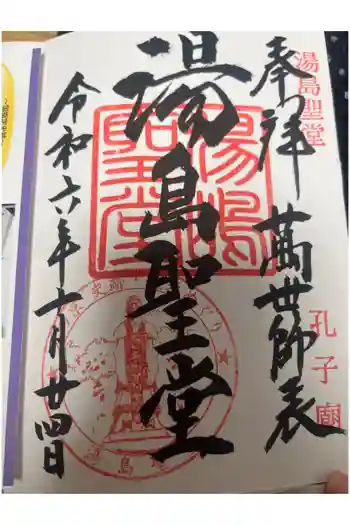 奉拝
湯島聖堂
萬世師表
孔子廟
湯島聖堂
湯島聖堂
令和六年十月廿四日